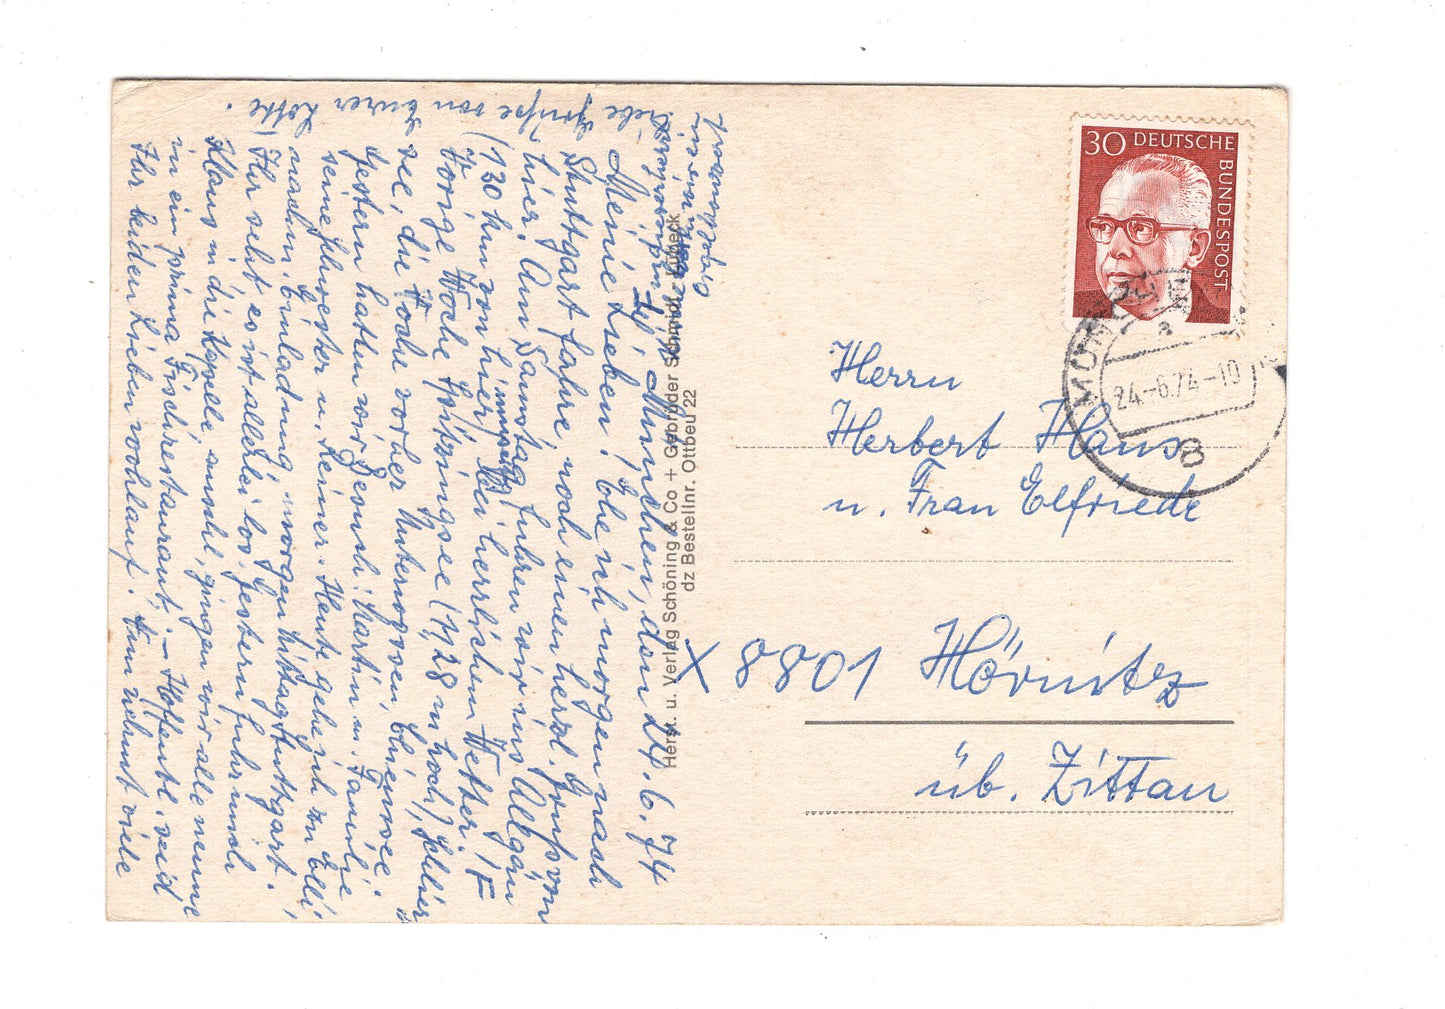 München, den 24. 6. 74
Meine Lieben! Ehe ich morgen nach
Stuttgart fahre, noch einen herzl. Gruß von
hier. Am Samstag fuhren wir ins Allgäu
(130 km von hier) bei herrlichem Wetter.
Vorige Woche Spitzingsee (1128 m hoch), Schlier
see, die Woche vorher Unterwössen, Chiemsee.
Gestern hatten wir Besuch: Martin m. Familie
seine Schwester u. Reiner. Heute gehe ich zu Elli,
nachm. Einladung, morgen Mittag Stuttgart.
Ihr seht, es ist allerlei los. Gestern fuhr mich
Klaus in die Kapelle, anschl. gingen wir alle neune
in ein prima Fischrestaurant. – Hoffentl. seid
Ihr beiden Lieben wohlauf. Nun nehmt viele
liebe Grüße von Eurer Lotte.
Herst. u. Verlag Schöning & Co + Gebrüder Schmidt, Lübeck
dz Bestellnr. Ottbeu 22
30 DEUTSCHE
BUNDESPOST
MÜNCHEN
a
24.-6.74-10
8
Herrn
Herbert Haus
u. Frau Elfriede
X 8801 Hörnitz
üb. Zittau